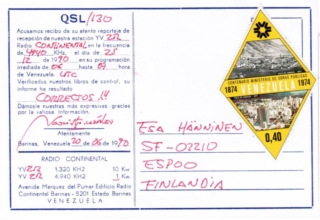 QSL/130
Acusamos recibo de su atento reportaje de
recepción de nuestra estación YV ZTZ
Radio CONTINENTAL en la frecuencia
de 4940 KHz. el día de 25
12 1990 en su programación
irradiada de 06 hasta 07 hora
de Venezuela. UTC
Verificados nuestros libros de control, su
informe ha resultado
CORRECTOS
Dámosle nuestras más expresivas gracias
por la valiosa información.
Atentamente
Barinas, Venezuela 20 de 06 de 1990
RADIO CONTINENTAL
1.320 KHZ 10 Kw
4.940 KHZ 1 Kw
Avenida Marqués del Pumar Edificio Radio
Continental Barinas - 5201 Estado Barinas
VENEZUELA
CENTENARIO MINISTERIO DE OBRAS PUBLICAS
1874 VENEZUELA 1974
0,40
ESA HÄNNINEN
SF-02210
ESPOO
FINLANDIA